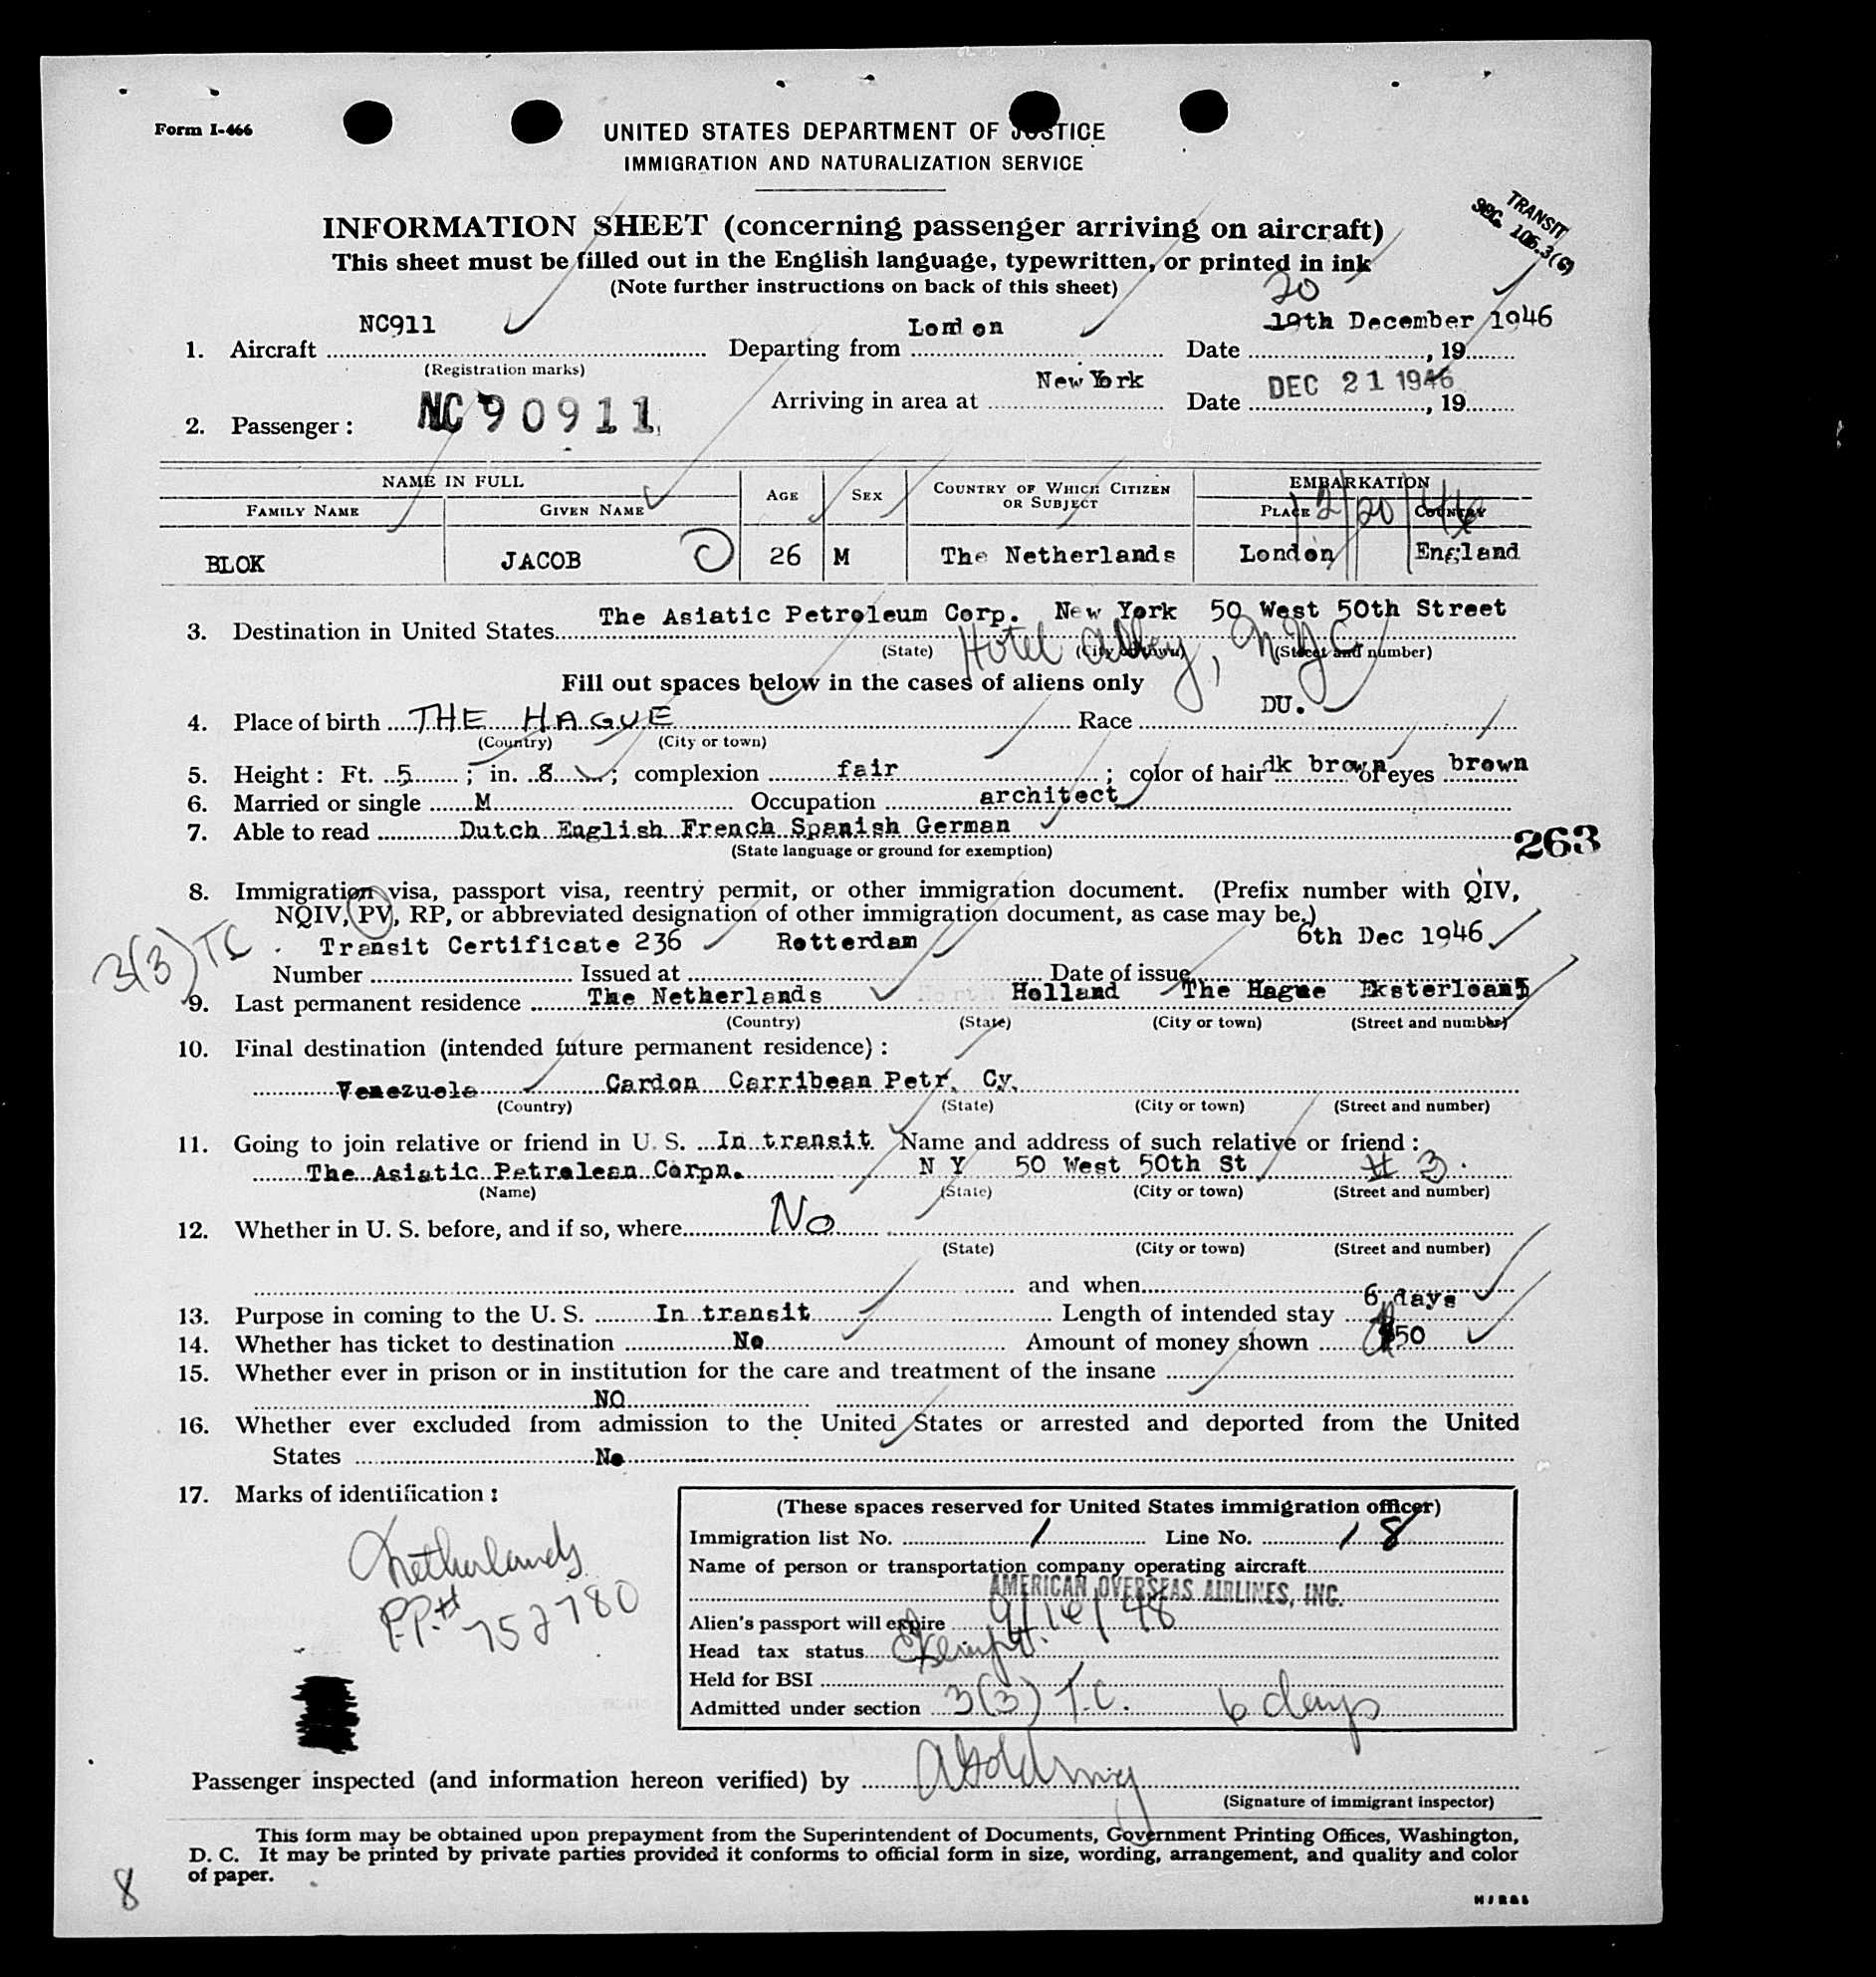 Form I-466
UNITED STATES DEPARTMENT OF JUSTICE
IMMIGRATION AND NATURALIZATION SERVICE
INFORMATION SHEET (concerning passenger arriving on aircraft)
TRANSIT
SEC. 106.3(6)
This sheet must be filled out in the English language, typewritten, or printed in ink
(Note further instructions on back of this sheet)
20
NC911 London 19th December 1946
1. Aircraft Departing from Date , 19
(Registration marks)
New York DEC 21 1946
Arriving in area at Date , 19
2. Passenger: NC90911
NAME IN FULL AGE SEX COUNTRY OF WHICH CITIZEN OR SUBJECT EMBARKATION
FAMILY NAME GIVEN NAME PLACE COUNTRY
12/20/46
BLOK JACOB 26 M The Netherlands London England
The Asiatic Petroleum Corp. New York 50 West 50th Street
3. Destination in United States
(State) (City or town) (Street and number)
Hotel Abbey, NYC
Fill out spaces below in the cases of aliens only
4. Place of birth THE HAGUE Race DU.
(Country) (City or town)
5. Height: Ft. 5; in. 8; complexion fair; color of hair dk brown of eyes brown
6. Married or single M Occupation architect
7. Able to read Dutch English French Spanish German
(State language or ground for exemption)
263
8. Immigration visa, passport visa, reentry permit, or other immigration document. (Prefix number with QIV,
NQIV, PV, RP, or abbreviated designation of other immigration document, as case may be.)
3(3) TC
Transit Certificate 236 Rotterdam 6th Dec 1946
Number Issued at Date of issue
9. Last permanent residence The Netherlands North Holland The Hague
(Country) (State) (City or town) (Street and number)
10. Final destination (intended future permanent residence):
Venezuela Cardon Carribean Petr. Cy.
(Country) (State) (City or town) (Street and number)
11. Going to join relative or friend in U. S. In transit. Name and address of such relative or friend:
The Asiatic Petrolean Corpn. N Y 50 West 50th St # 3.
(Name) (State) (City or town) (Street and number)
12. Whether in U. S. before, and if so, where No
(State) (City or town) (Street and number)
and when
13. Purpose in coming to the U. S. In transit Length of intended stay 6 days
14. Whether has ticket to destination No Amount of money shown $50
15. Whether ever in prison or in institution for the care and treatment of the insane
NO
16. Whether ever excluded from admission to the United States or arrested and deported from the United
States No
17. Marks of identification:
Netherlands
P.P.# 752780
(These spaces reserved for United States immigration officer)
Immigration list No. 1 Line No. 18
Name of person or transportation company operating aircraft
AMERICAN OVERSEAS AIRLINES, INC.
Alien's passport will expire 9/16/48
Head tax status Exempt.
Held for BSI
Admitted under section 3(3) T.C. 6 days
Passenger inspected (and information hereon verified) by
(Signature of immigrant inspector)
This form may be obtained upon prepayment from the Superintendent of Documents, Government Printing Offices, Washington,
D. C. It may be printed by private parties provided it conforms to official form in size, wording, arrangement, and quality and color
of paper.
8